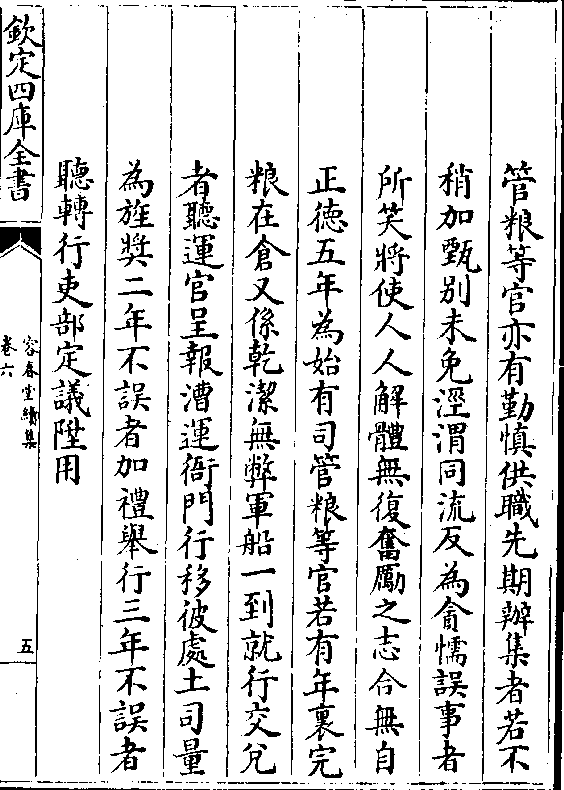 管粮等官亦有勤慎供職先期辦集者若不
稍加甄别未免涇渭同流反為貪懦誤事者
所笑將使人人解體無復奮勵之志合無自
正徳五年為始有司管粮等官若有年裏完
粮在倉又係乾潔無弊軍船一到就行交兑
者聽運官呈報漕運衙門行移彼處土司量
為旌奬二年不誤者加禮舉行三年不誤者
聽轉行吏部定議陞用
欽定四庫全書
容春堂續集
卷六
五